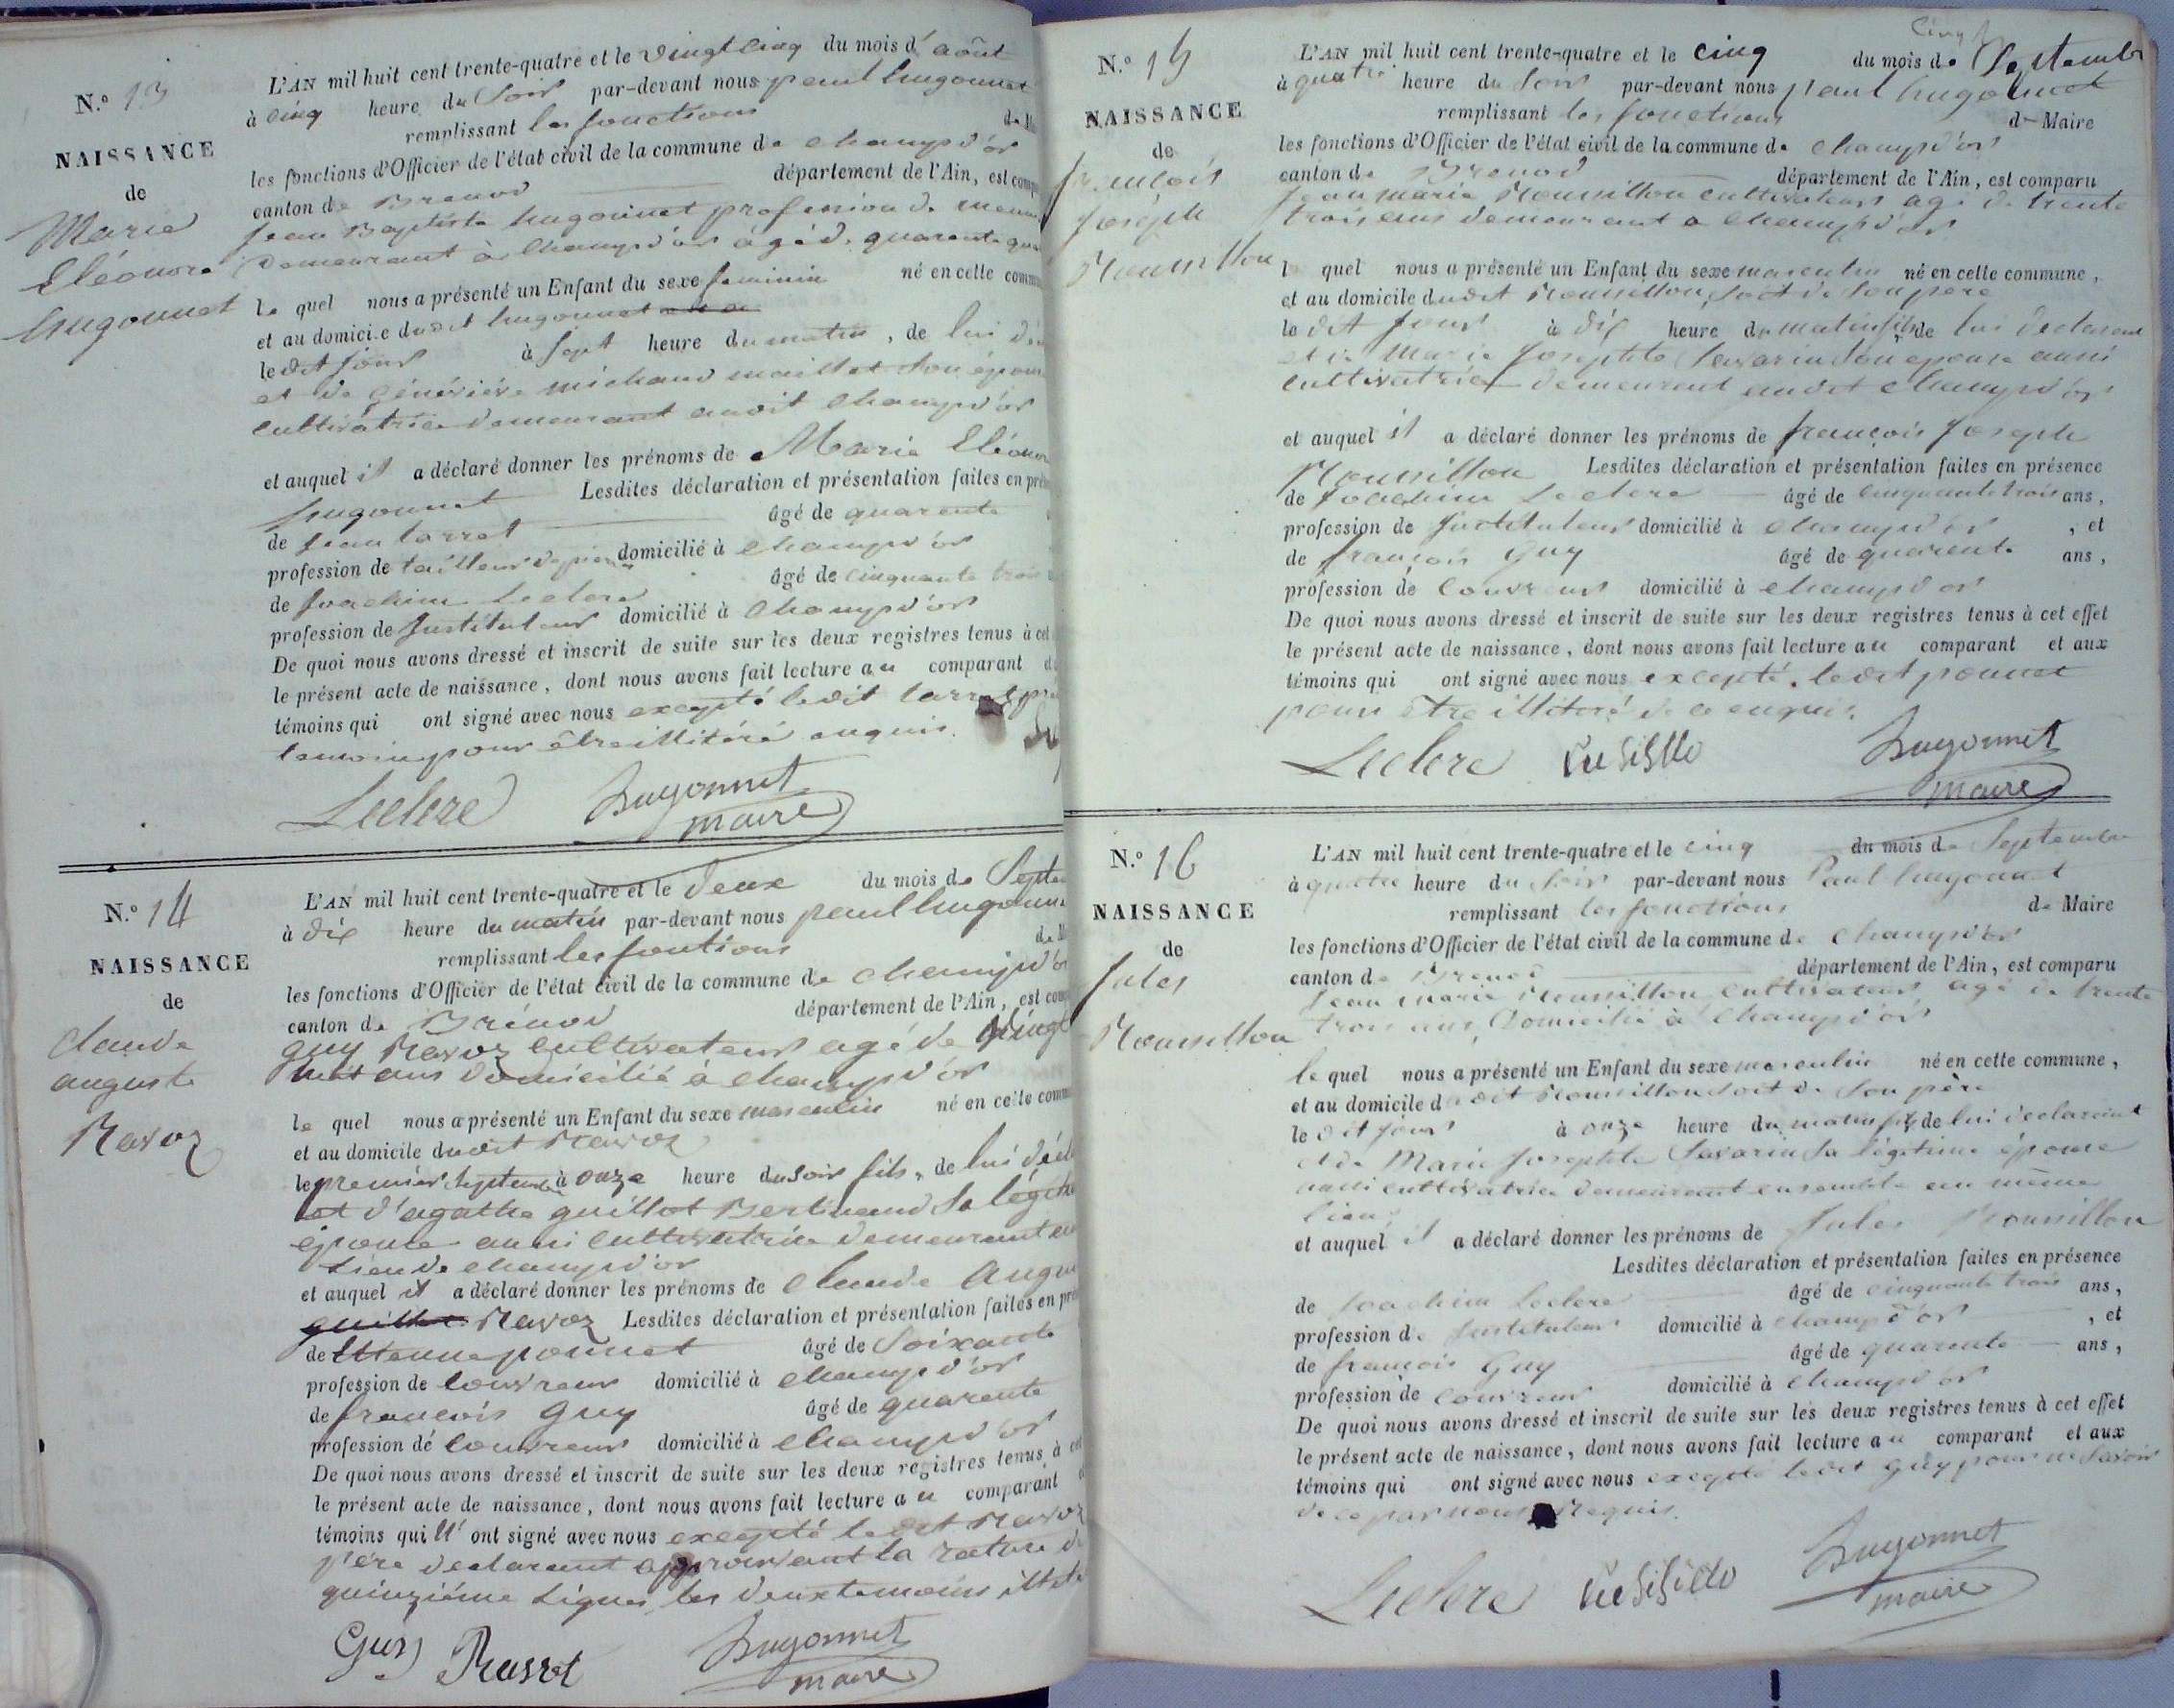 N.° 13
NAISSANCE
de
Marie
Eléonore
hugonnet
L'AN mil huit cent trente-quatre et le vingt cinq du mois d'août
à cinq heure du Soir par-devant nous paul hugonnet
remplissant les fonctions de
les fonctions d'Officier de l'état civil de la commune de champd'or
canton de Brenod département de l'Ain, est
jean Baptiste hugonnet profession de
demeurant à champd'or âgé de quarante
le quel nous a présenté un Enfant du sexe feminin né en cette
et au domicile dudit hugonnet
le dit jour à sept heure du matin, de lui
et de généviéve michaud maillet son
cultivatrice demeurant audit champd'or
et auquel il a déclaré donner les prénoms de Marie
hugonnet Lesdites déclaration et présentation faites en
de jean tarret âgé de quarante
profession de tailleur de domicilié à champd'or
de joachim Leclere âgé de cinquante trois
profession de Instituteur domicilié à champd'or
De quoi nous avons dressé et inscrit de suite sur les deux registres tenus à cet
le présent acte de naissance, dont nous avons fait lecture au comparant
témoins qui ont signé avec nous excepté ledit
temoin pour être illitéré enquis.
Leclere Hugonnet
maire
N.° 14
NAISSANCE
de
claude
auguste
Ravoz
L'AN mil huit cent trente-quatre et le deux du mois de
à dix heure du matin par-devant nous paul
remplissant les fontions de
les fonctions d'Officier de l'état civil de la commune de champd'or
canton de Brénod département de l'Ain, est
guy Ravoz cultivateur agé de vingt
huit ans domicilié à champd'or
le quel nous a présenté un Enfant du sexe masculin né en cette
et au domicile dudit Ravoz
le premier septembre à onze heure du soir fils, de lui
et d'agathe guillot Bertinand sa
épouse aussi cultivatrice demeurant
Lieu de champd'or
et auquel il a déclaré donner les prénoms de claude
Ravoz Lesdites déclaration et présentation faites en
de Etienne ponnet âgé de Soixante
profession de couvreur domicilié à champd'or
de françois guy âgé de quarante
profession de couvreur domicilié à champd'or
De quoi nous avons dressé et inscrit de suite sur les deux registres tenus à
le présent acte de naissance, dont nous avons fait lecture au comparant
témoins qui ont signé avec nous excepté ledit Ravoz
père declarant approuvant la rature
quinziéme Ligne les deux temoins
Hugonnet
maire
N.° 15
NAISSANCE
de
françois
joseph
Roussillon
L'AN mil huit cent trente-quatre et le cinq du mois de Septembre
à quatre heure du Soir par-devant nous paul hugonnet
remplissant les fonctions de Maire
les fonctions d'Officier de l'état civil de la commune de champd'or
canton de Brenod département de l'Ain, est comparu
jean marie Roussillon cultivateur agé de trente
trois ans demeurant a champd'or
l quel nous a présenté un Enfant du sexe masculin né en cette commune,
et au domicile dudit Roussillon soit de son père
le dit jour à dix heure du matin fils de lui declarant
et de Marie josephte Savarin son epouse aussi
cultivatrice demeurant audit champd'or
et auquel il a déclaré donner les prénoms de françois joseph
Roussillon Lesdites déclaration et présentation faites en présence
de joachim Leclere âgé de cinquante trois ans,
profession de Instituteur domicilié à champd'or, et
de françois guy âgé de quarente ans,
profession de couvreur domicilié à champd'or
De quoi nous avons dressé et inscrit de suite sur les deux registres tenus à cet effet
le présent acte de naissance, dont nous avons fait lecture au comparant et aux
témoins qui ont signé avec nous excepté. ledit ponnet
pour être illitéré de ce enquis.
Leclere Hugonnet
maire
N.° 16
NAISSANCE
de
Jules
Roussillon
L'AN mil huit cent trente-quatre et le cinq du mois de Septembre
à quatre heure du Soir par-devant nous Paul hugonnet
remplissant les fonctions de Maire
les fonctions d'Officier de l'état civil de la commune de champd'or
canton de Brenod département de l'Ain, est comparu
jean marie Roussillon cultivateur agé de trente
trois ans, Domicilié à champd'or
le quel nous a présenté un Enfant du sexe masculin né en cette commune,
et au domicile dudit Roussillon soit de son père
le dit jour à onze heure du matin fils de lui declarant
et de Marie josephte Savarin sa légitime épouse
aussi cultivatrice demeurant ensemble au même
lieu
et auquel il a déclaré donner les prénoms de Jules Roussillon
Lesdites déclaration et présentation faites en présence
de joachim Leclere âgé de cinquante trois ans,
profession de Instituteur domicilié à champd'or, et
de françois guy âgé de quarante ans,
profession de couvreur domicilié à champd'or
De quoi nous avons dressé et inscrit de suite sur les deux registres tenus à cet effet
le présent acte de naissance, dont nous avons fait lecture au comparant et aux
témoins qui ont signé avec nous excepté ledit guy pour ne savoir
de ce par nous Requis.
Leclere Hugonnet
maire